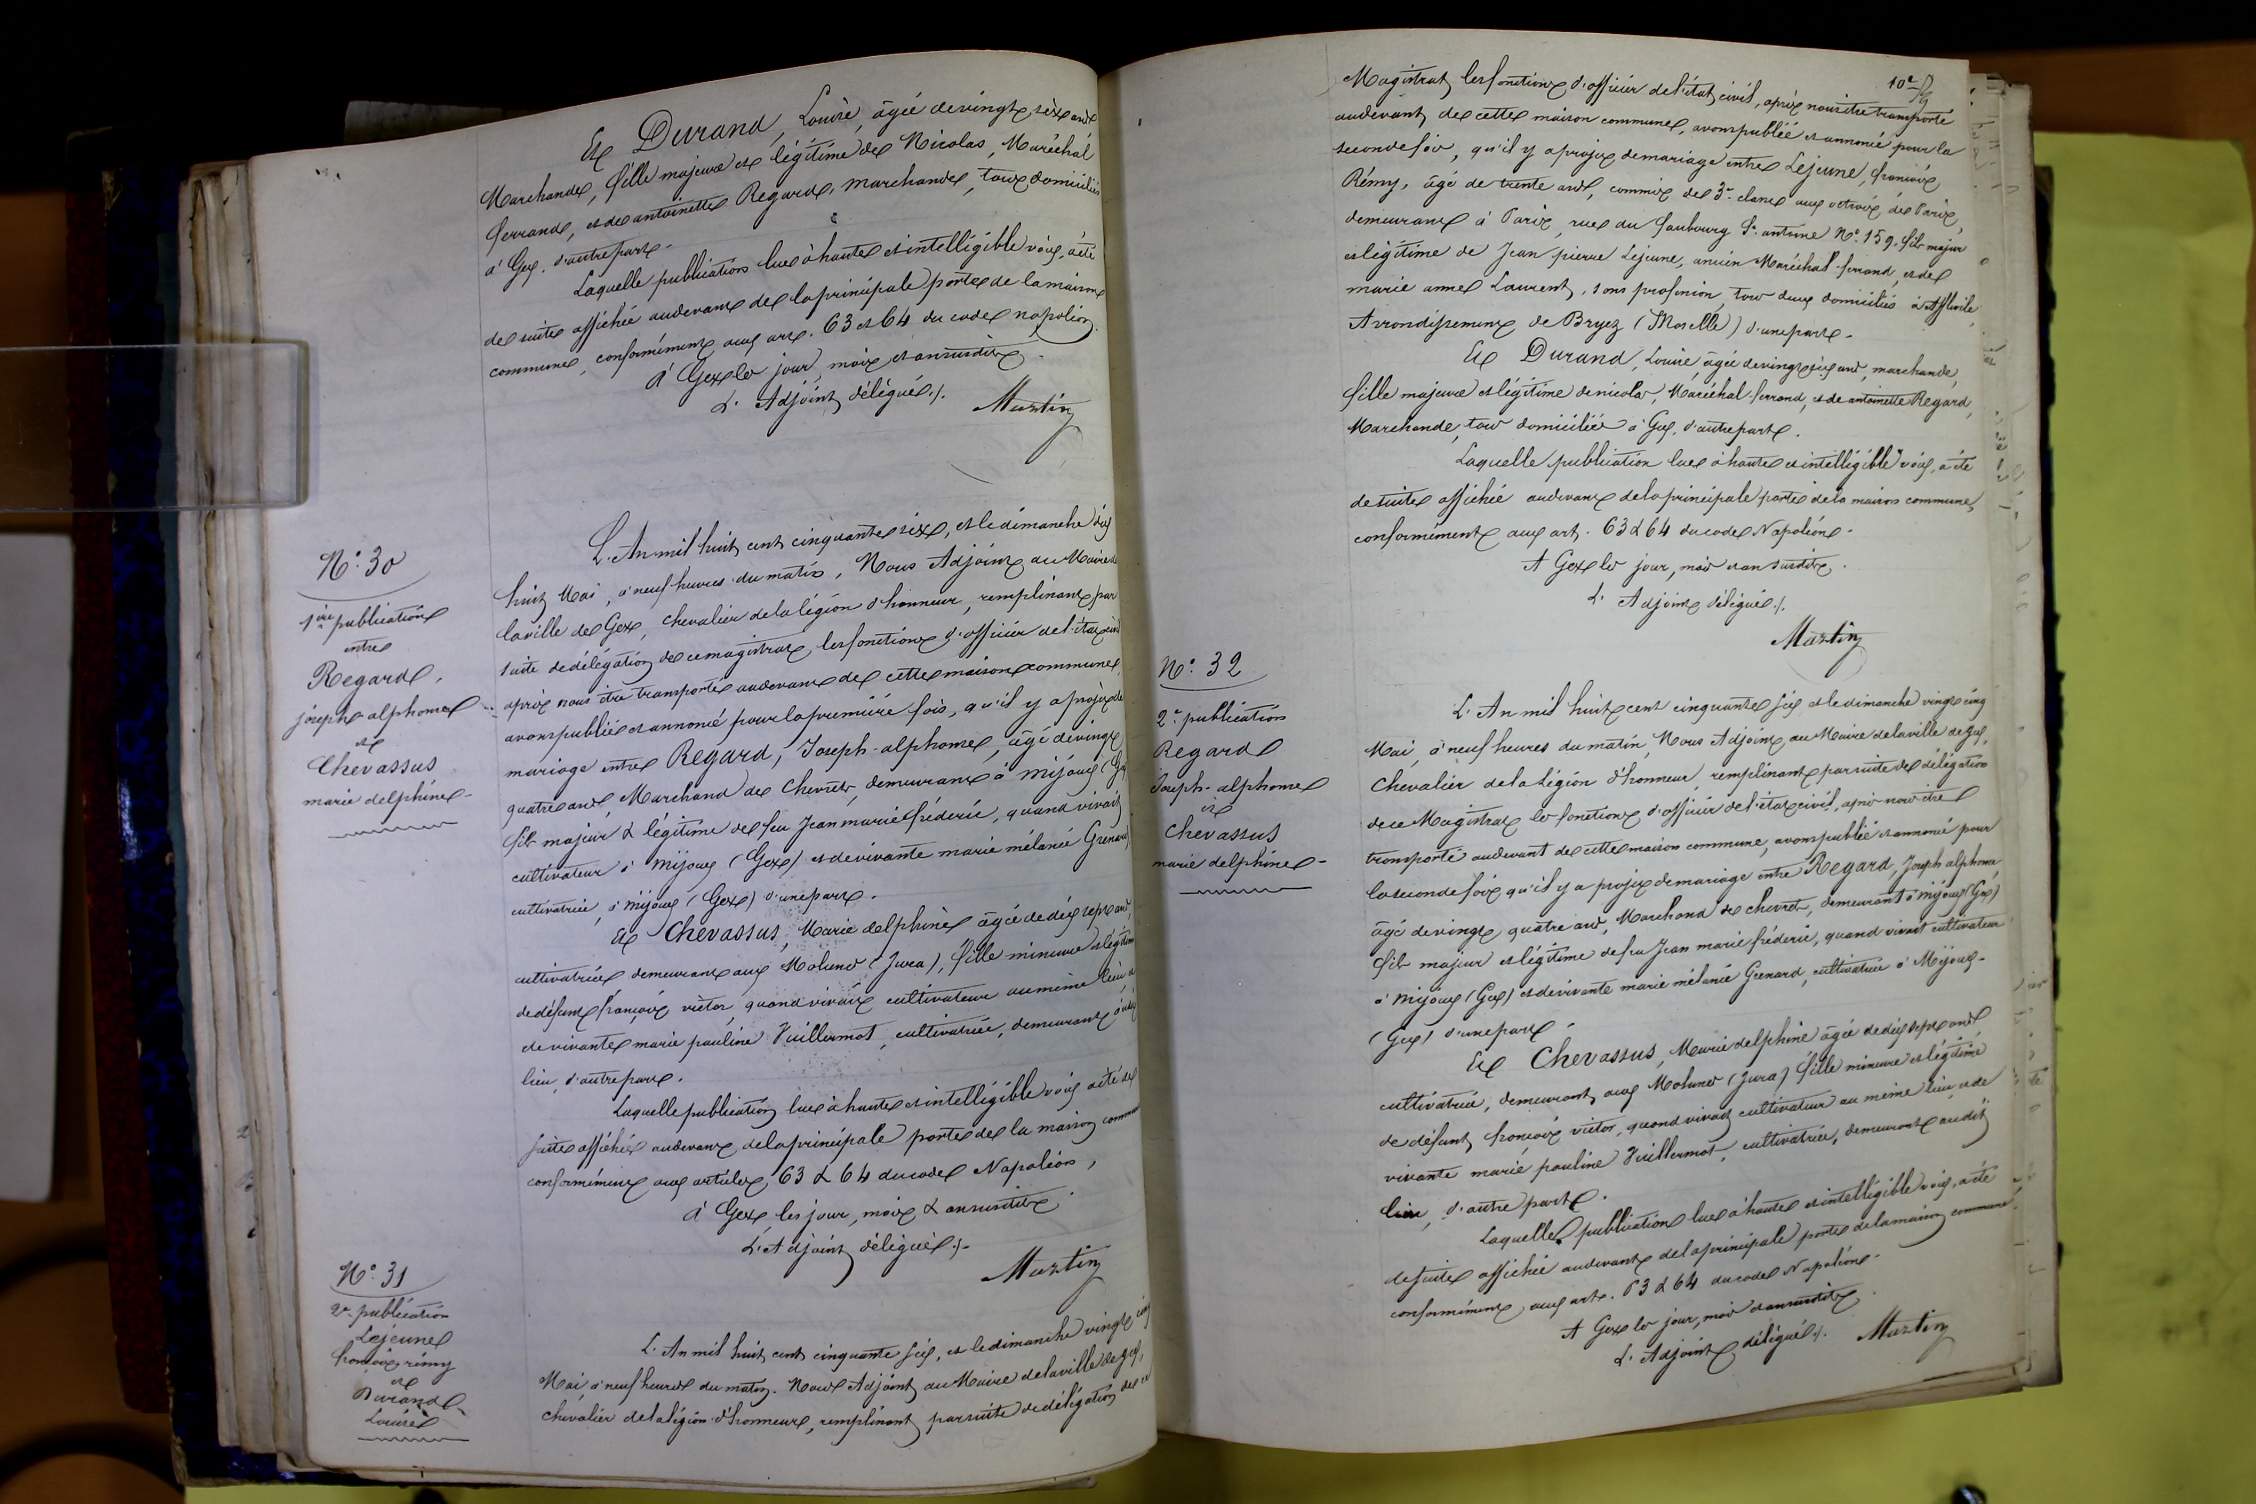 Et Durand, Louise, âgée de vingt six ans
Marchande, fille majeure et légitime de Nicolas, Maréchal
ferrand, et de antoinette Regard, marchande, tous domiciliés
à Gex, d'autre part.
Laquelle publication lue à haute et intelligible voix, a été
de suite affichée audevant de la principale porte de la maison
commune, conformément aux art. 63 et 64 du code napoléon.
A Gex les jour, mois et an susdits.
L'Adjoint délégué ./.
Martin
N.° 30
1ère publication
entre
Regard,
joseph alphonse
et
Chevassus
marie delphine
L'An mil huit cent cinquante six, et le dimanche dix
huit Mai, à neuf heures du matin, Nous Adjoint au Maire de
la ville de Gex, chevalier de la légion d'honneur, remplissant par
suite de délégation de ce magistrat, les fonctions d'officier de l'état civil
après nous être transporté audevant de cette maison commune,
avons publié et annoncé pour la première fois, qu'il y a projet de
mariage entre Regard, Joseph-alphonse, âgé de vingt
quatre ans, Marchand de Chevrets, demeurant à Mijoux (Gex
fils majeur & légitime de feu Jean marie frédéric, quand vivait
cultivateur à Mijoux (Gex) et de vivante marie mélanie Grenard
cultivatrice, à Mijoux (Gex) d'une part.
Et Chevassus, Marie delphine âgée de dix sept ans,
cultivatrice demeurant aux Molunes (Jura), fille mineure et légitime
de défunt françois victor, quand vivait cultivateur au même lieu, et
de vivante marie pauline Vuillermot, cultivatrice, demeurant audit
lieu, d'autre part.
Laquelle publication lue à haute et intelligible voix a été de
suite affichée audevant de la principale porte de la maison commune
conformément aux articles 63 & 64 du code Napoléon,
à Gex, les jour, mois & an susdits.
L'Adjoint délégué ./.
Martin
N.° 31
2e publication
Lejeune
françois rémy
et
Durand
Louise
L'An mil huit cent cinquante six, et le dimanche vingt cinq
Mai, à neuf heures du matin. Nous Adjoint au Maire de la ville de gex,
chevalier de la légion d'honneur, remplissant par suite de délégation de ce
10e
Magistrat les fonctions d'officier de l'état civil, après nous être transporté
audevant de cette maison commune, avons publié et annoncé pour la
seconde fois, qu'il y a projet de mariage entre Lejeune, françois
Rémy, âgé de trente ans, commis de 3e classe aux octrois de Paris,
demeurant à Paris, rue du faubourg St. antoine N.° 159. fils majeur
et légitime de Jean pierre Lejeune, ancien Maréchal-ferrand, et de
marie anne Laurent, sans profession, tous deux domiciliés à
Arrondissement de Bryez (Moselle) d'une part.
Et Durand, Louise, âgée de vingt six ans, marchande,
fille majeure et légitime de nicolas, Maréchal-ferrand, et de antoinette Regard,
Marchande, tous domiciliés à Gex, d'autre part.
Laquelle publication lue à haute et intelligible voix, a été
de suite affichée audevant de la principale porte de la maison commune,
conformément aux art. 63 & 64 du code Napoléon.
A Gex les jour, mois et an susdits.
L'Adjoint délégué ./.
Martin
N.° 32
2e publication
Regard
Joseph-alphonse
et
Chevassus
marie delphine
L'An mil huit cent cinquante six et le dimanche vingt cinq
Mai, à neuf heures du matin, Nous Adjoint au Maire de la ville de gex,
Chevalier de la Légion d'honneur, remplissant par suite de délégation
de ce Magistrat les fonctions d'officier de l'état civil, après nous être
transporté audevant de cette maison commune, avons publié et annoncé pour
la seconde fois qu'il y a projet de mariage entre Regard, Joseph alphonse,
âgé de vingt quatre ans, Marchand de chevrets, demeurant à Mijoux (Gex)
fils majeur et légitime de feu Jean marie frédéric, quand vivait cultivateur
à Mijoux (Gex) et de vivante marie mélanie Grenard, cultivatrice à Mijoux
(Gex) d'une part.
Et Chevassus, Marie delphine âgée de dix sept ans,
cultivatrice, demeurant aux Molunes (Jura) fille mineure et légitime
de défunt françois victor, quand vivait cultivateur au même lieu, et de
vivante marie pauline Vuillermot, cultivatrice, demeurant audit
lieu, d'autre part.
Laquelle publication lue à haute et intelligible voix, a été
de suite affichée audevant de la principale porte de la maison commune,
conformément aux arts. 63 & 64 du code Napoléon.
A Gex les jour, mois et an susdits.
L'Adjoint délégué ./. Martin